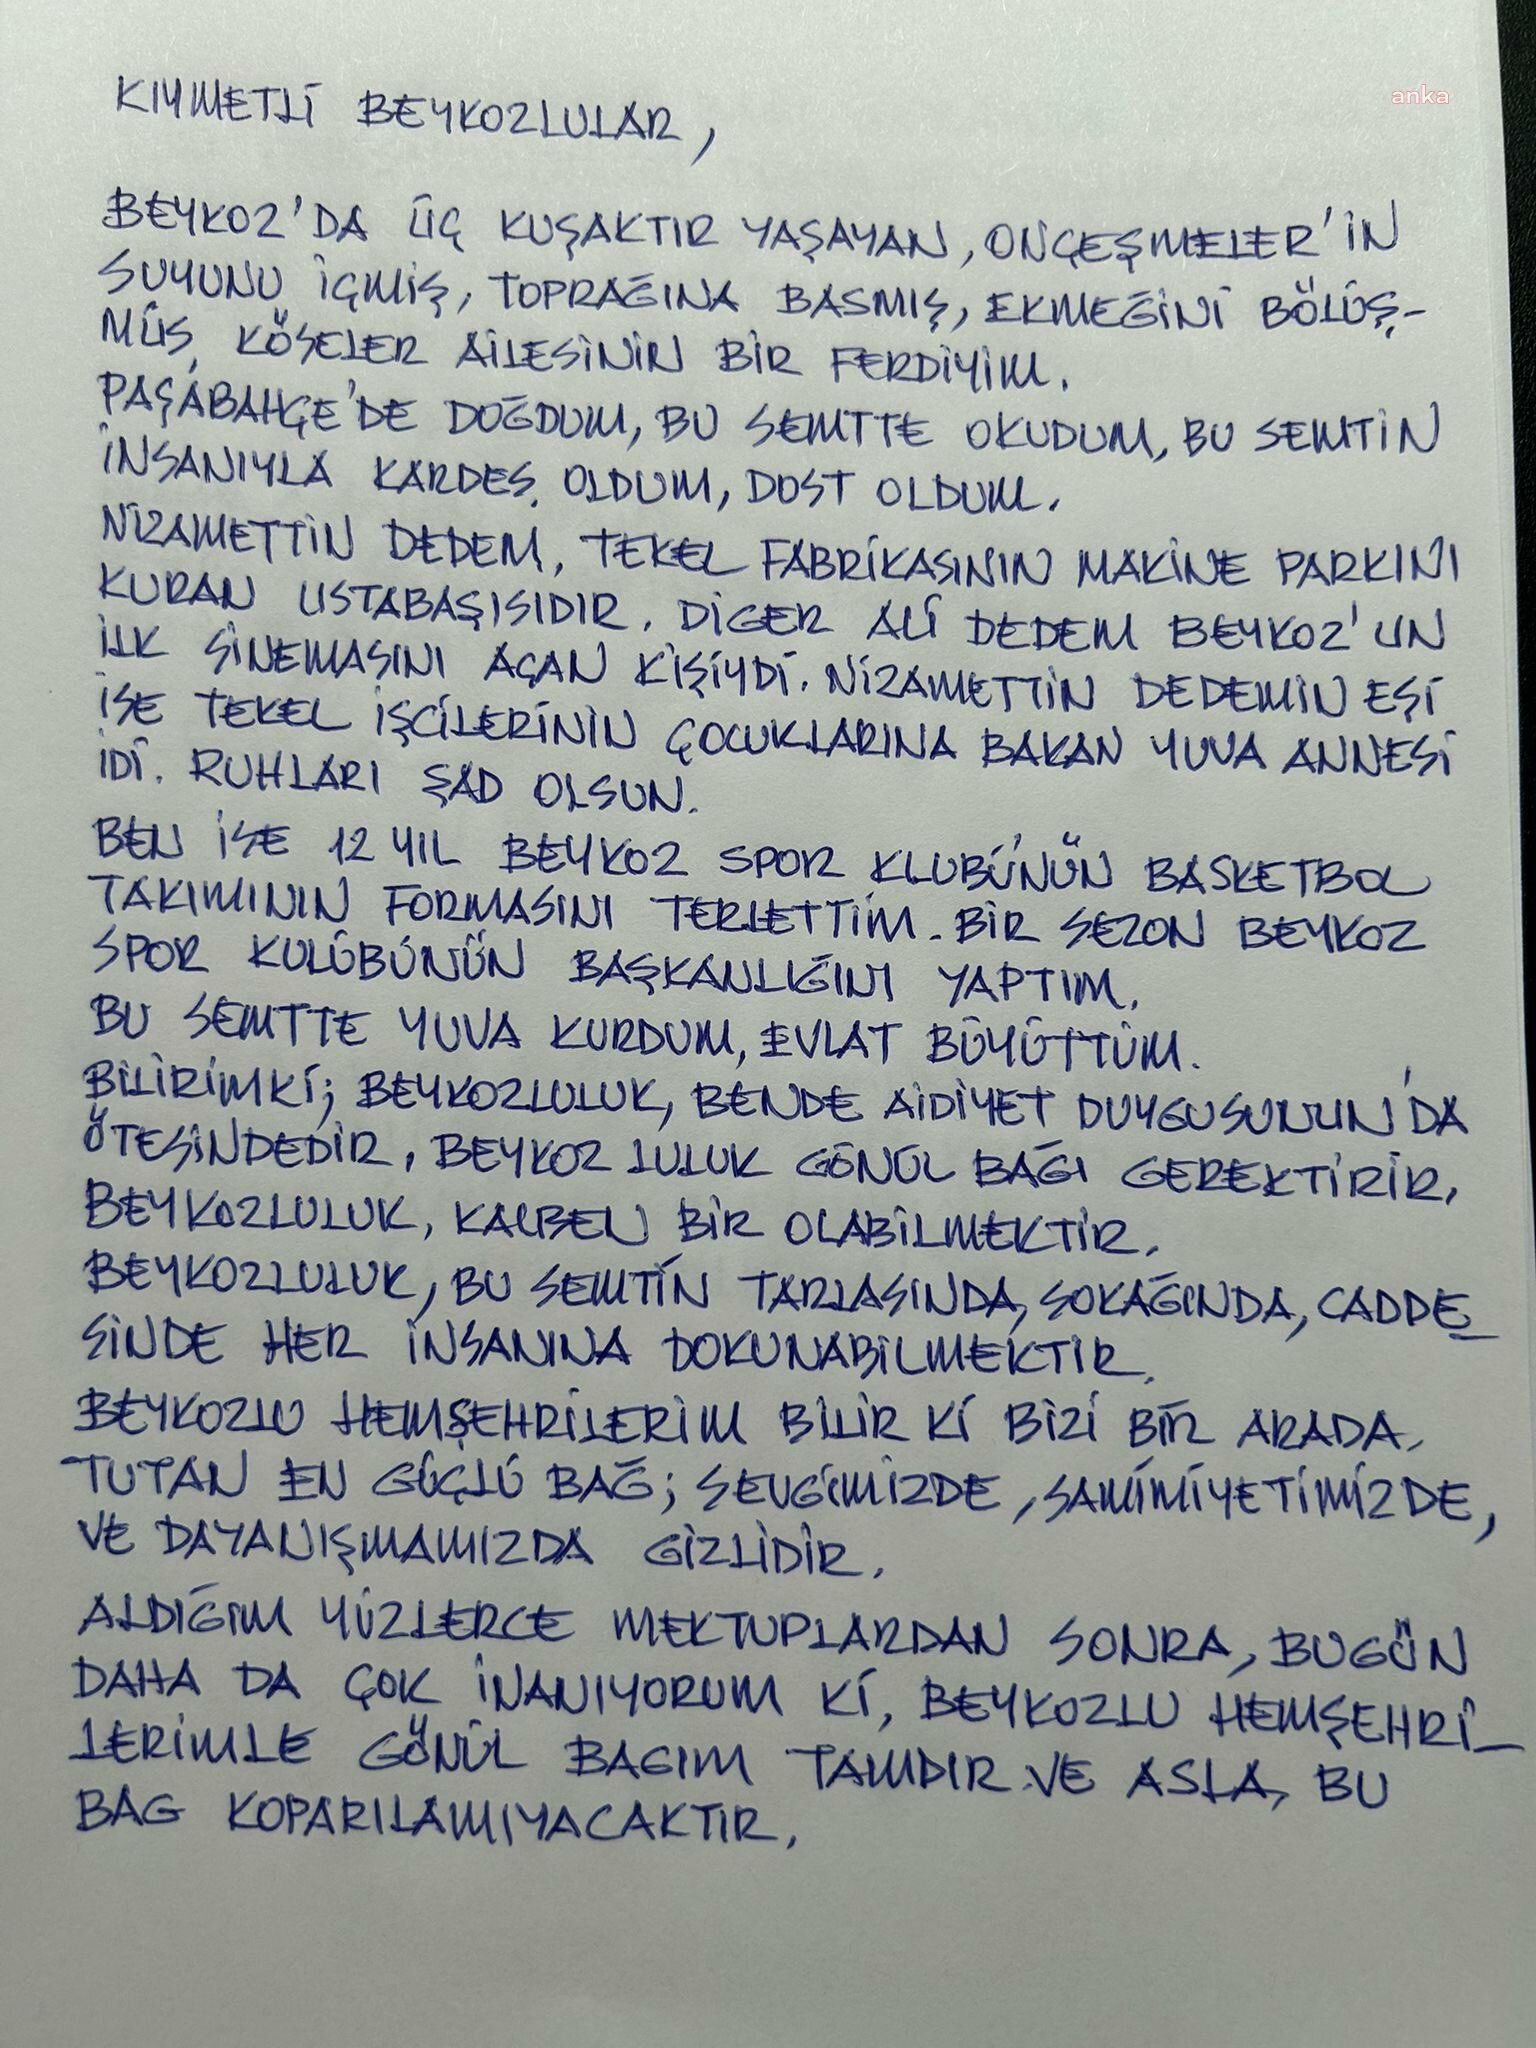 anka
KIYMETLİ BEYKOZLULAR,
BEYKOZ'DA ÜÇ KUŞAKTIR YAŞAYAN, ONÇEŞMELER'İN
SUYUNU İÇMİŞ, TOPRAĞINA BASMIŞ, EKMEĞİNİ BÖLÜŞ-
MÜŞ KÖSELER AİLESİNİN BİR FERDİYİM.
PAŞABAHÇE'DE DOĞDUM, BU SEMTTE OKUDUM, BU SEMTİN
İNSANIYLA KARDEŞ OLDUM, DOST OLDUM.
NİZAMETTİN DEDEM, TEKEL FABRİKASININ MAKİNE PARKINI
KURAN USTABAŞISIDIR. DİGER ALİ DEDEM BEYKOZ'UN
İLK SİNEMASINI AÇAN KİŞİYDİ. NİZAMETTİN DEDEMİN EŞİ
İSE TEKEL İŞCİLERİNİN ÇOCUKLARINA BAKAN YUVA ANNESİ
İDİ. RUHLARI ŞAD OLSUN.
BEN İSE 12 YIL BEYKOZ SPOR KLUBÜ'NÜN BASKETBOL
TAKIMININ FORMASINI TERLETTİM. BİR SEZON BEYKOZ
SPOR KULÜBÜNÜN BAŞKANLIĞINI YAPTIM.
BU SEMTTE YUVA KURDUM, EVLAT BÜYÜTTÜM.
BİLİRİMKİ; BEYKOZLULUK, BENDE AİDİYET DUYGUSUNUN'DA
ÖTESİNDEDİR, BEYKOZLULUK GÖNÜL BAĞI GEREKTİRİR,
BEYKOZLULUK, KALBEN BİR OLABİLMEKTİR.
BEYKOZLULUK, BU SEMTİN TARLASINDA, SOKAĞINDA, CADDE_
SİNDE HER İNSANINA DOKUNABİLMEKTİR.
BEYKOZLU HEMŞEHRİLERİM BİLİR Kİ BİZİ BİR ARADA
TUTAN EN GÜÇLÜ BAĞ; SEVGİMİZDE, SAMİMİYETİMİZDE,
VE DAYANIŞMAMIZDA GİZLİDİR.
ALDIĞIM YÜZLERCE MEKTUPLARDAN SONRA, BUGÜN
DAHA DA ÇOK İNANIYORUM Kİ, BEYKOZLU HEMŞEHRİ_
LERİMLE GÖNÜL BAGIM TAMDIR VE ASLA, BU
BAG KOPARILAMIYACAKTIR.